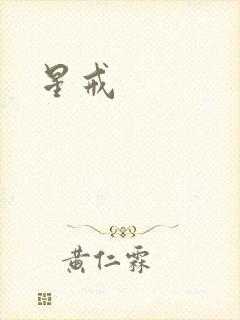 星戒
黄仁霖